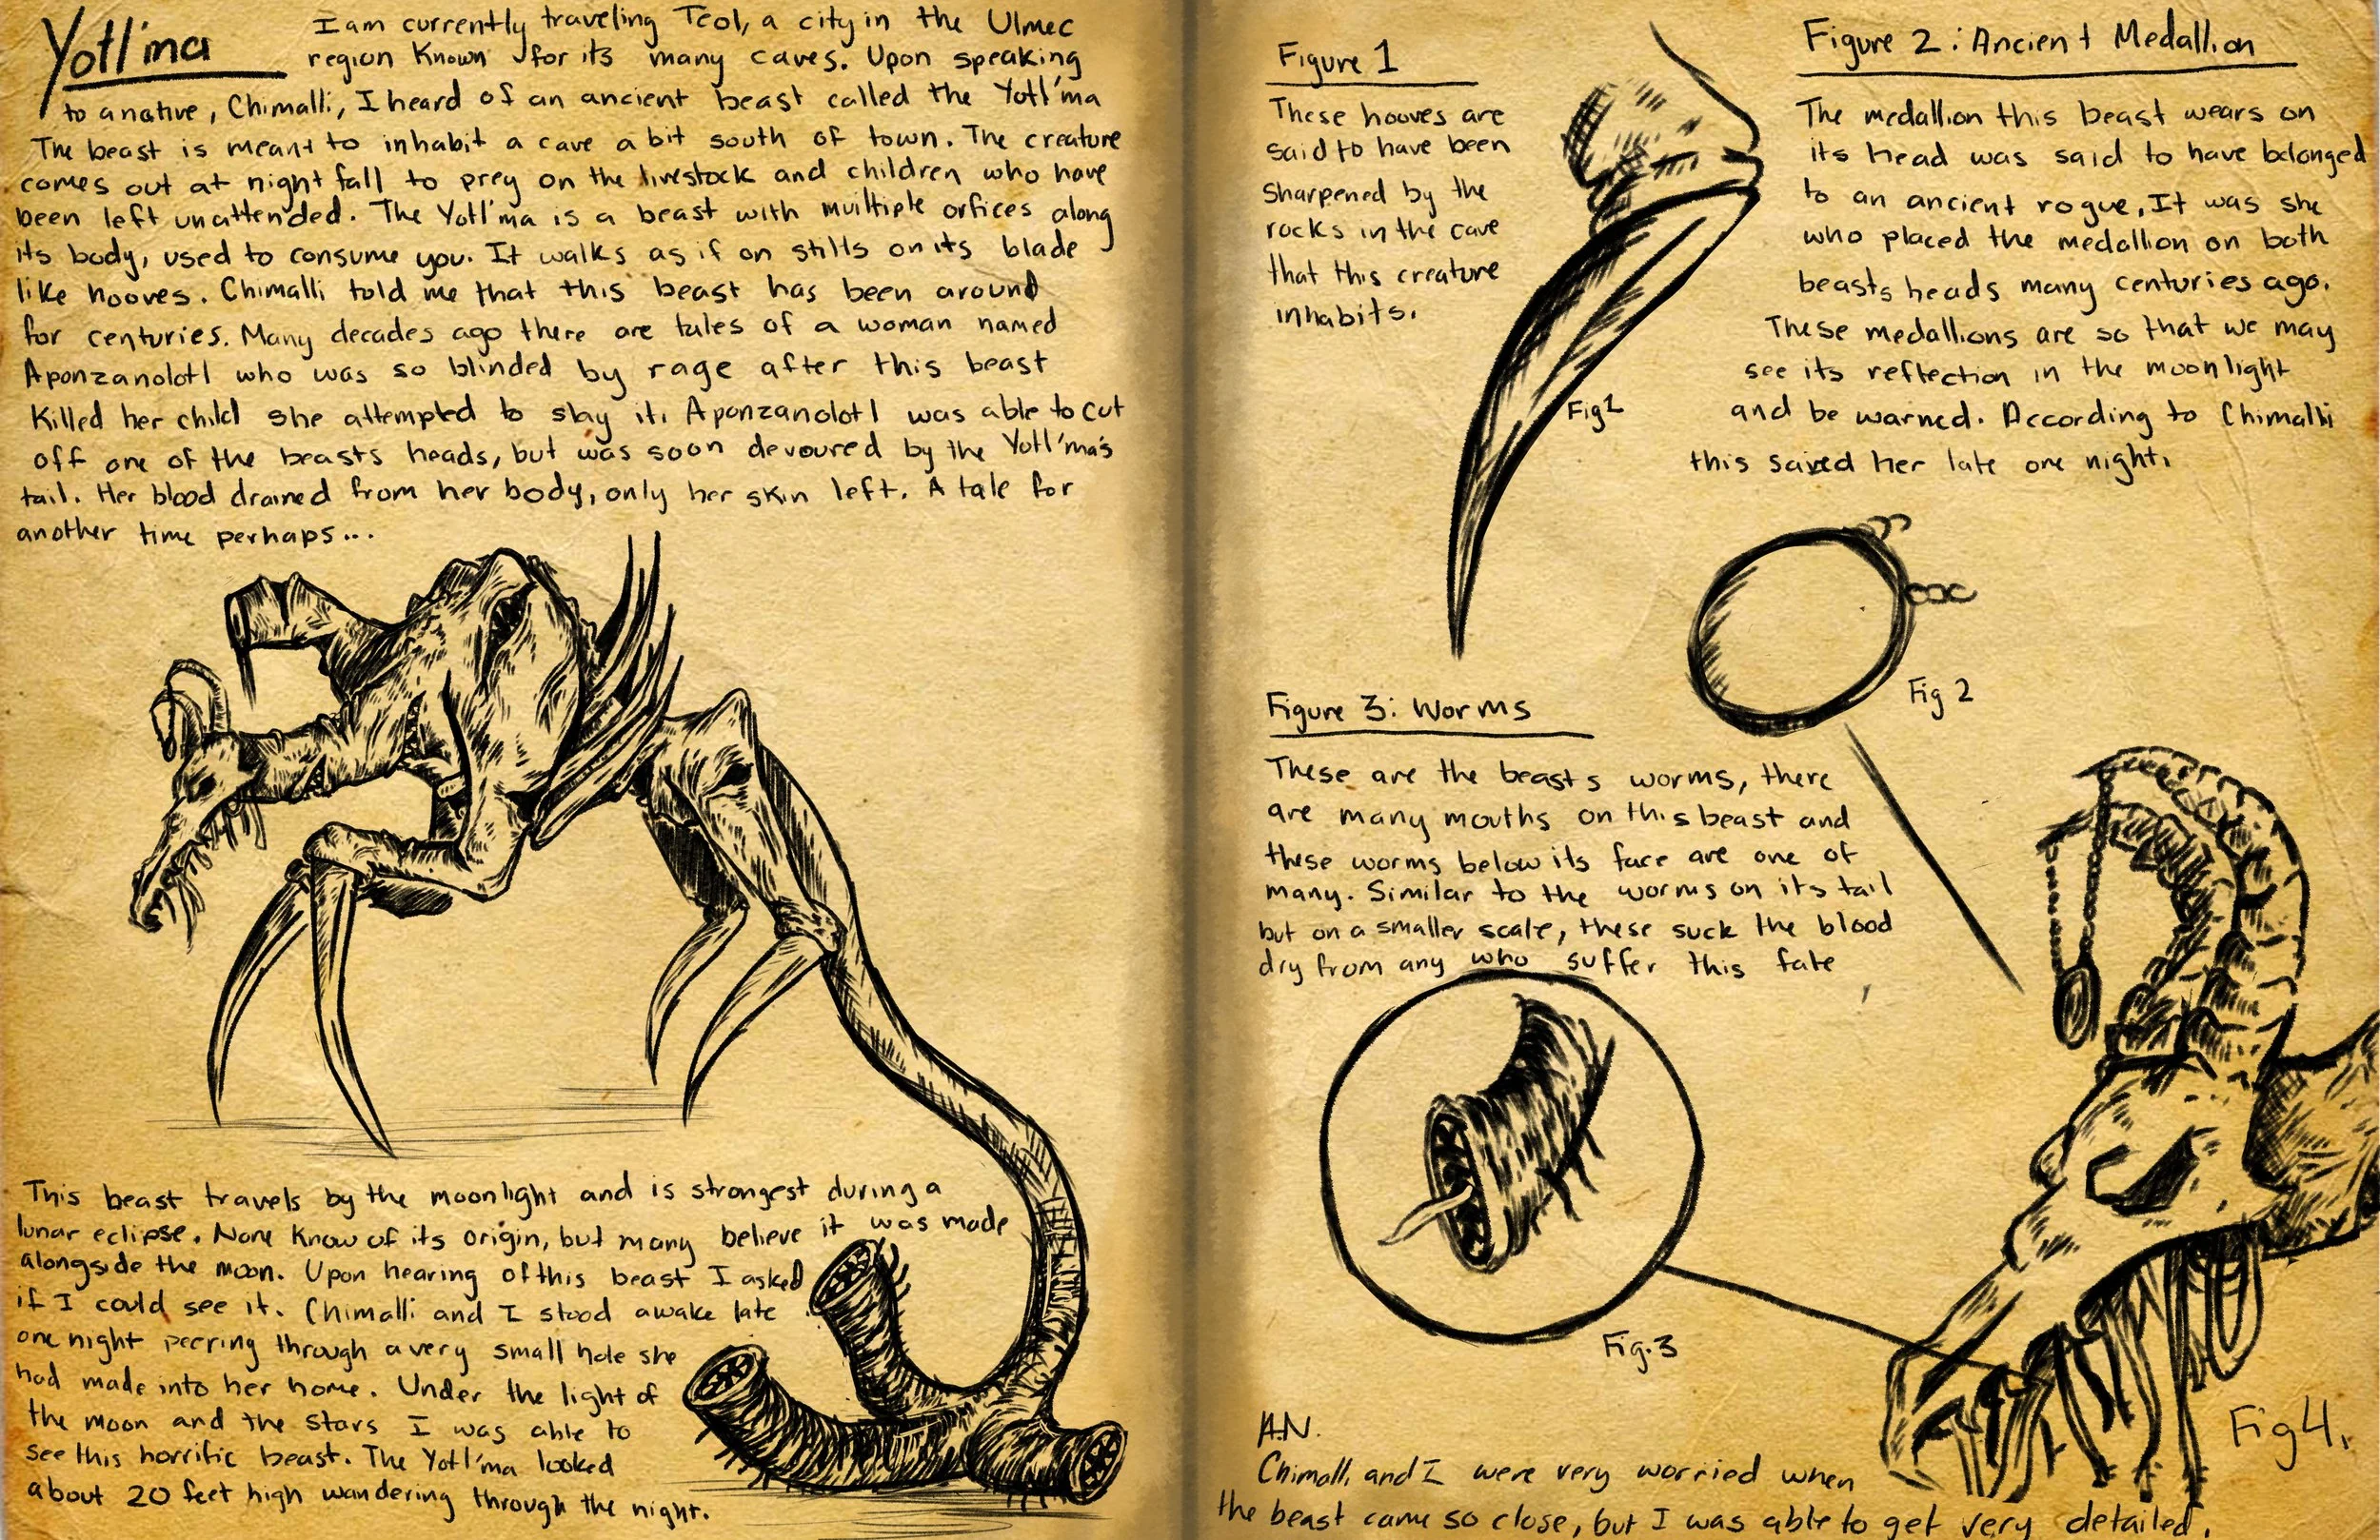 Yotl'ma
I am currently traveling Teol, a city in the Ulmec
region known for its many caves. Upon speaking
to a native, Chimalli, I heard of an ancient beast called the Yotl'ma
The beast is meant to inhabit a cave a bit south of town. The creature
comes out at night fall to prey on the livestock and children who have
been left unattended. The Yotl'ma is a beast with muiltiple orfices along
its body, used to consume you. It walks as if on stills on its blade
like hooves. Chimalli told me that this beast has been around
for centuries. Many decades ago there are tales of a woman named
Aponzanolotl who was so blinded by rage after this beast
killed her child she attempted to slay it. Aponzanolotl was able to cut
off one of the beasts heads, but was soon devoured by the Yotl'ma's
tail. Her blood drained from her body, only her skin left. A tale for
another time perhaps...
This beast travels by the moonlight and is strongest during a
lunar eclipse. None know of its origin, but many believe it was made
alongside the moon. Upon hearing of this beast I asked
if I could see it. Chimalli and I stood awake late
one night peering through a very small hole she
had made into her home. Under the light of
the moon and the stars I was able to
see this horrific beast. The Yotl'ma looked
about 20 feet high wandering through the night.
Figure 1
These hooves are
said to have been
sharpened by the
rocks in the cave
that this creature
inhabits.
Fig1
Figure 2: Ancient Medallion
The medallion this beast wears on
its head was said to have belonged
to an ancient rogue. It was she
who placed the medallion on both
beasts heads many centuries ago.
These medallions are so that we may
see its reflection in the moonlight
and be warned. According to Chimalli
this saved her late one night.
Fig 2
Figure 3: Worms
These are the beasts worms, there
are many mouths on this beast and
these worms below its face are one of
many. Similar to the worms on its tail
but on a smaller scale, these suck the blood
dry from any who suffer this fate
Fig.3
Fig4.
A.N.
Chimalli and I were very worried when
the beast came so close, but I was able to get very detailed.